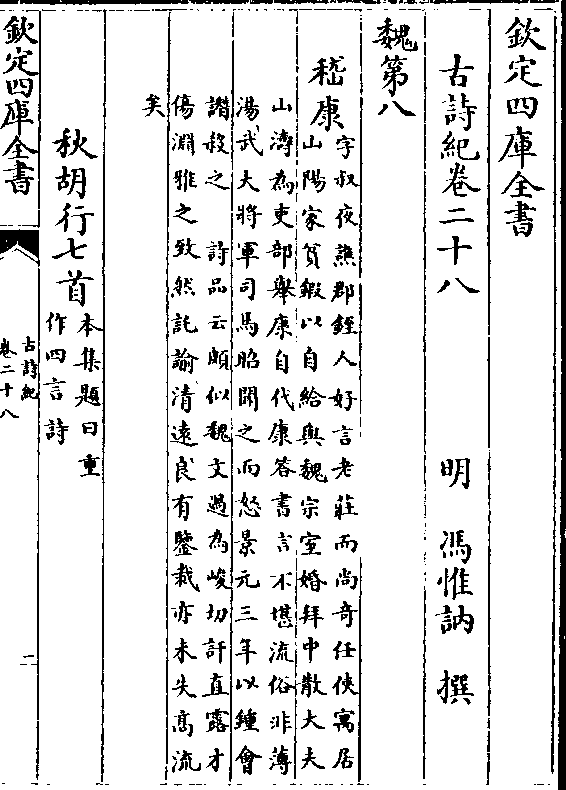 欽定四庫全書
古詩紀卷二十八
明　馮惟訥　撰
魏第八
嵇康
字叔夜譙郡銍人好言老莊而尚奇任俠寓居
山陽家貧鍜以自給與魏宗室婚拜中散大夫
山濤為吏部舉康自代康荅書言不堪流俗非薄
湯武大將軍司馬昭聞之而怒景元三年以鍾會
譖殺之　詩品云頗似魏文過為峻切訐直露才
傷淵雅之致然託諭清遠良有鑒裁亦未失高流
矣
秋胡行七首
本集題曰重
作四言詩
欽定四庫全書
古詩紀
卷二十八